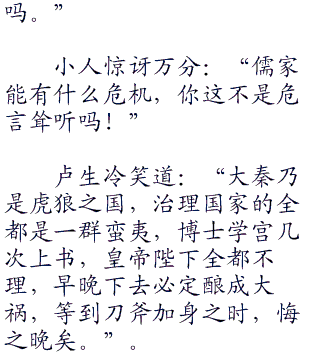 吗。”
小人惊讶万分：“儒家
能有什么危机，你这不是危
言耸听吗！”
卢生冷笑道：“大秦乃
是虎狼之国，治理国家的全
都是一群蛮夷，博士学宫几
次上书，皇帝陛下全都不
理，早晚下去必定酿成大
祸，等到刀斧加身之时，悔
之晚矣。”。